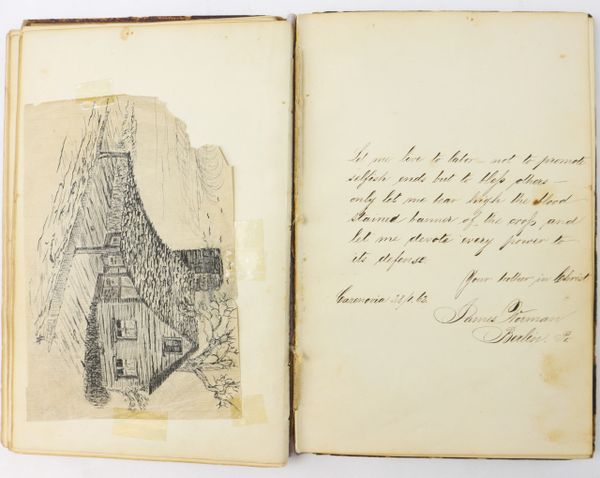 Let me live to labor – not to promote
selfish ends but to bless others –
only let me bear high the blood
stained banner of the cross and
let me devote every power to
its defense
Your brother in Christ
Cazenovia 28/1. 62.
James Norman
Berlin